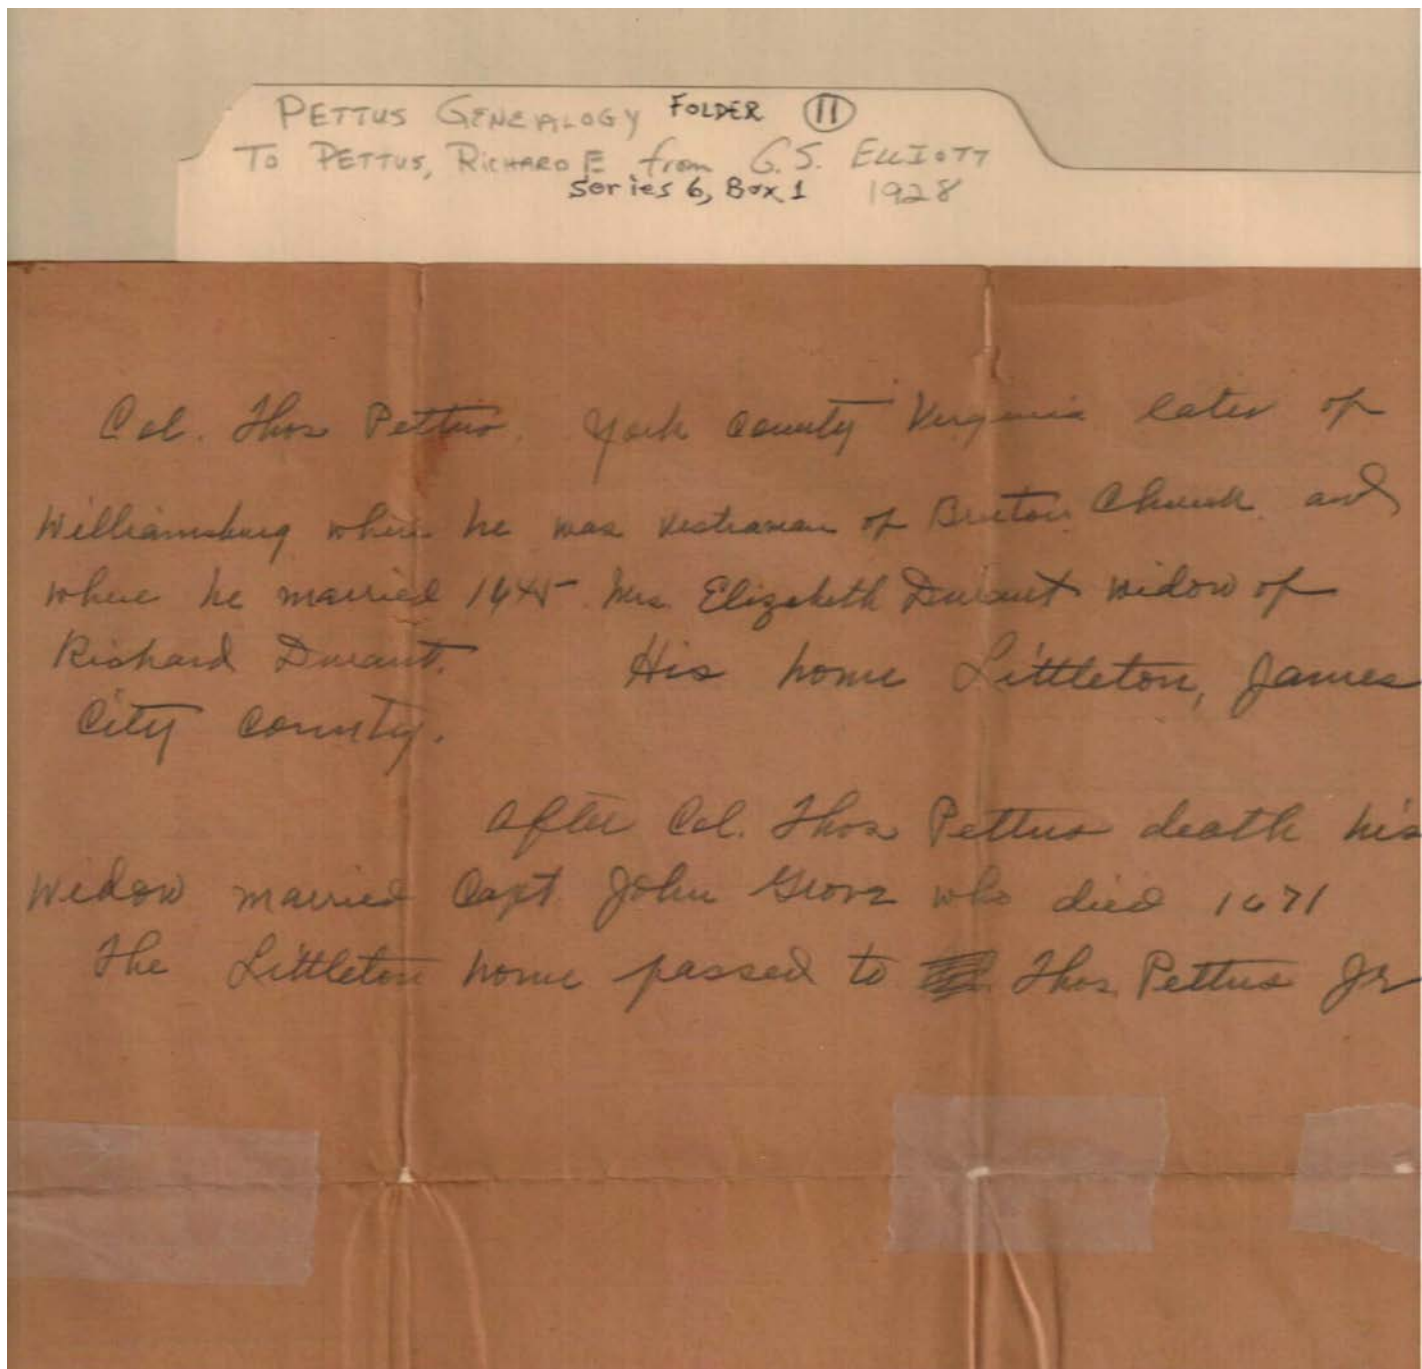 PETTUS GENEALOGY FOLDER 11
TO PETTUS, RICHARD E from G.S. ELLIOTT
Series 6, Box 1 1928
Col. Thos Pettus. York County Virginia later of
Williamsburg where he was vestraman of Bruton Church and
where he married 1645 Mrs. Elizabeth Durant widow of
Richard Durant. His home Littleton, James
City County.
After Col. Thos Pettus death his
widow married Capt John Grove who died 1671
The Littleton home passed to Thos. Pettus Jr